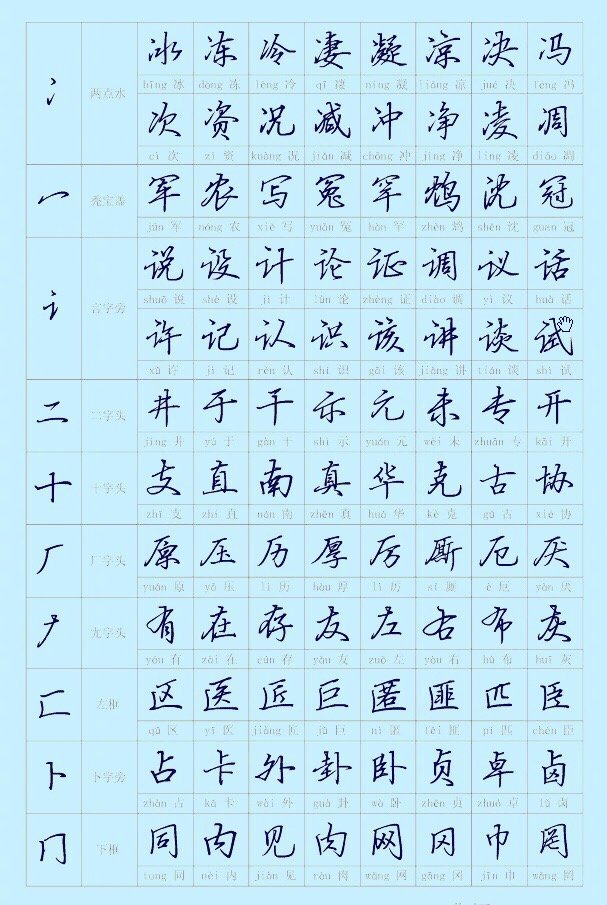 冫 两点水 冰 冻 冷 凄 凝 凉 决 冯
bīng 冰 dòng 冻 lěng 冷 qī 凄 níng 凝 liáng 凉 jué 决 féng 冯
次 资 况 减 冲 净 凌 凋
cì 次 zī 资 kuàng 况 jiǎn 减 chōng 冲 jìng 净 líng 凌 diāo 凋
冖 秃宝盖 军 农 写 冤 罕 鸩 沈 冠
jūn 军 nóng 农 xiě 写 yuān 冤 hǎn 罕 zhèn 鸩 shěn 沈 guān 冠
讠 言字旁 说 设 计 论 证 调 议 话
shuō 说 shè 设 jì 计 lùn 论 zhèng 证 diào 调 yì 议 huà 话
许 记 认 识 该 讲 谈 试
xǔ 许 jì 记 rèn 认 shí 识 gāi 该 jiǎng 讲 tián 谈 shì 试
二 二字头 井 于 干 示 元 未 专 开
jǐng 井 yú 于 gàn 干 shì 示 yuán 元 wèi 未 zhuān 专 kāi 开
十 十字头 支 直 南 真 华 克 古 协
zhī 支 zhí 直 nán 南 zhēn 真 huá 华 kè 克 gǔ 古 xié 协
厂 厂字头 原 压 历 厚 厉 厮 厄 厌
yuán 原 yā 压 lì 历 hòu 厚 lì 厉 sī 厮 è 厄 yàn 厌
𠂇 尢字头 有 在 存 友 左 右 布 灰
yǒu 有 zài 在 cún 存 yǒu 友 zuǒ 左 yòu 右 bù 布 huī 灰
匚 左框 区 医 匠 巨 匿 匪 匹 臣
qū 区 yī 医 jiàng 匠 jù 巨 nì 匿 fěi 匪 pǐ 匹 chén 臣
卜 卜字旁 占 卡 外 卦 卧 贞 卓 卤
zhàn 占 kǎ 卡 wài 外 guà 卦 wò 卧 zhēn 贞 zhuó 卓 lǔ 卤
冂 下框 同 内 见 肉 网 冈 巾 罔
tóng 同 nèi 内 jiàn 见 ròu 肉 wǎng 网 gāng 冈 jīn 巾 wǎng 罔